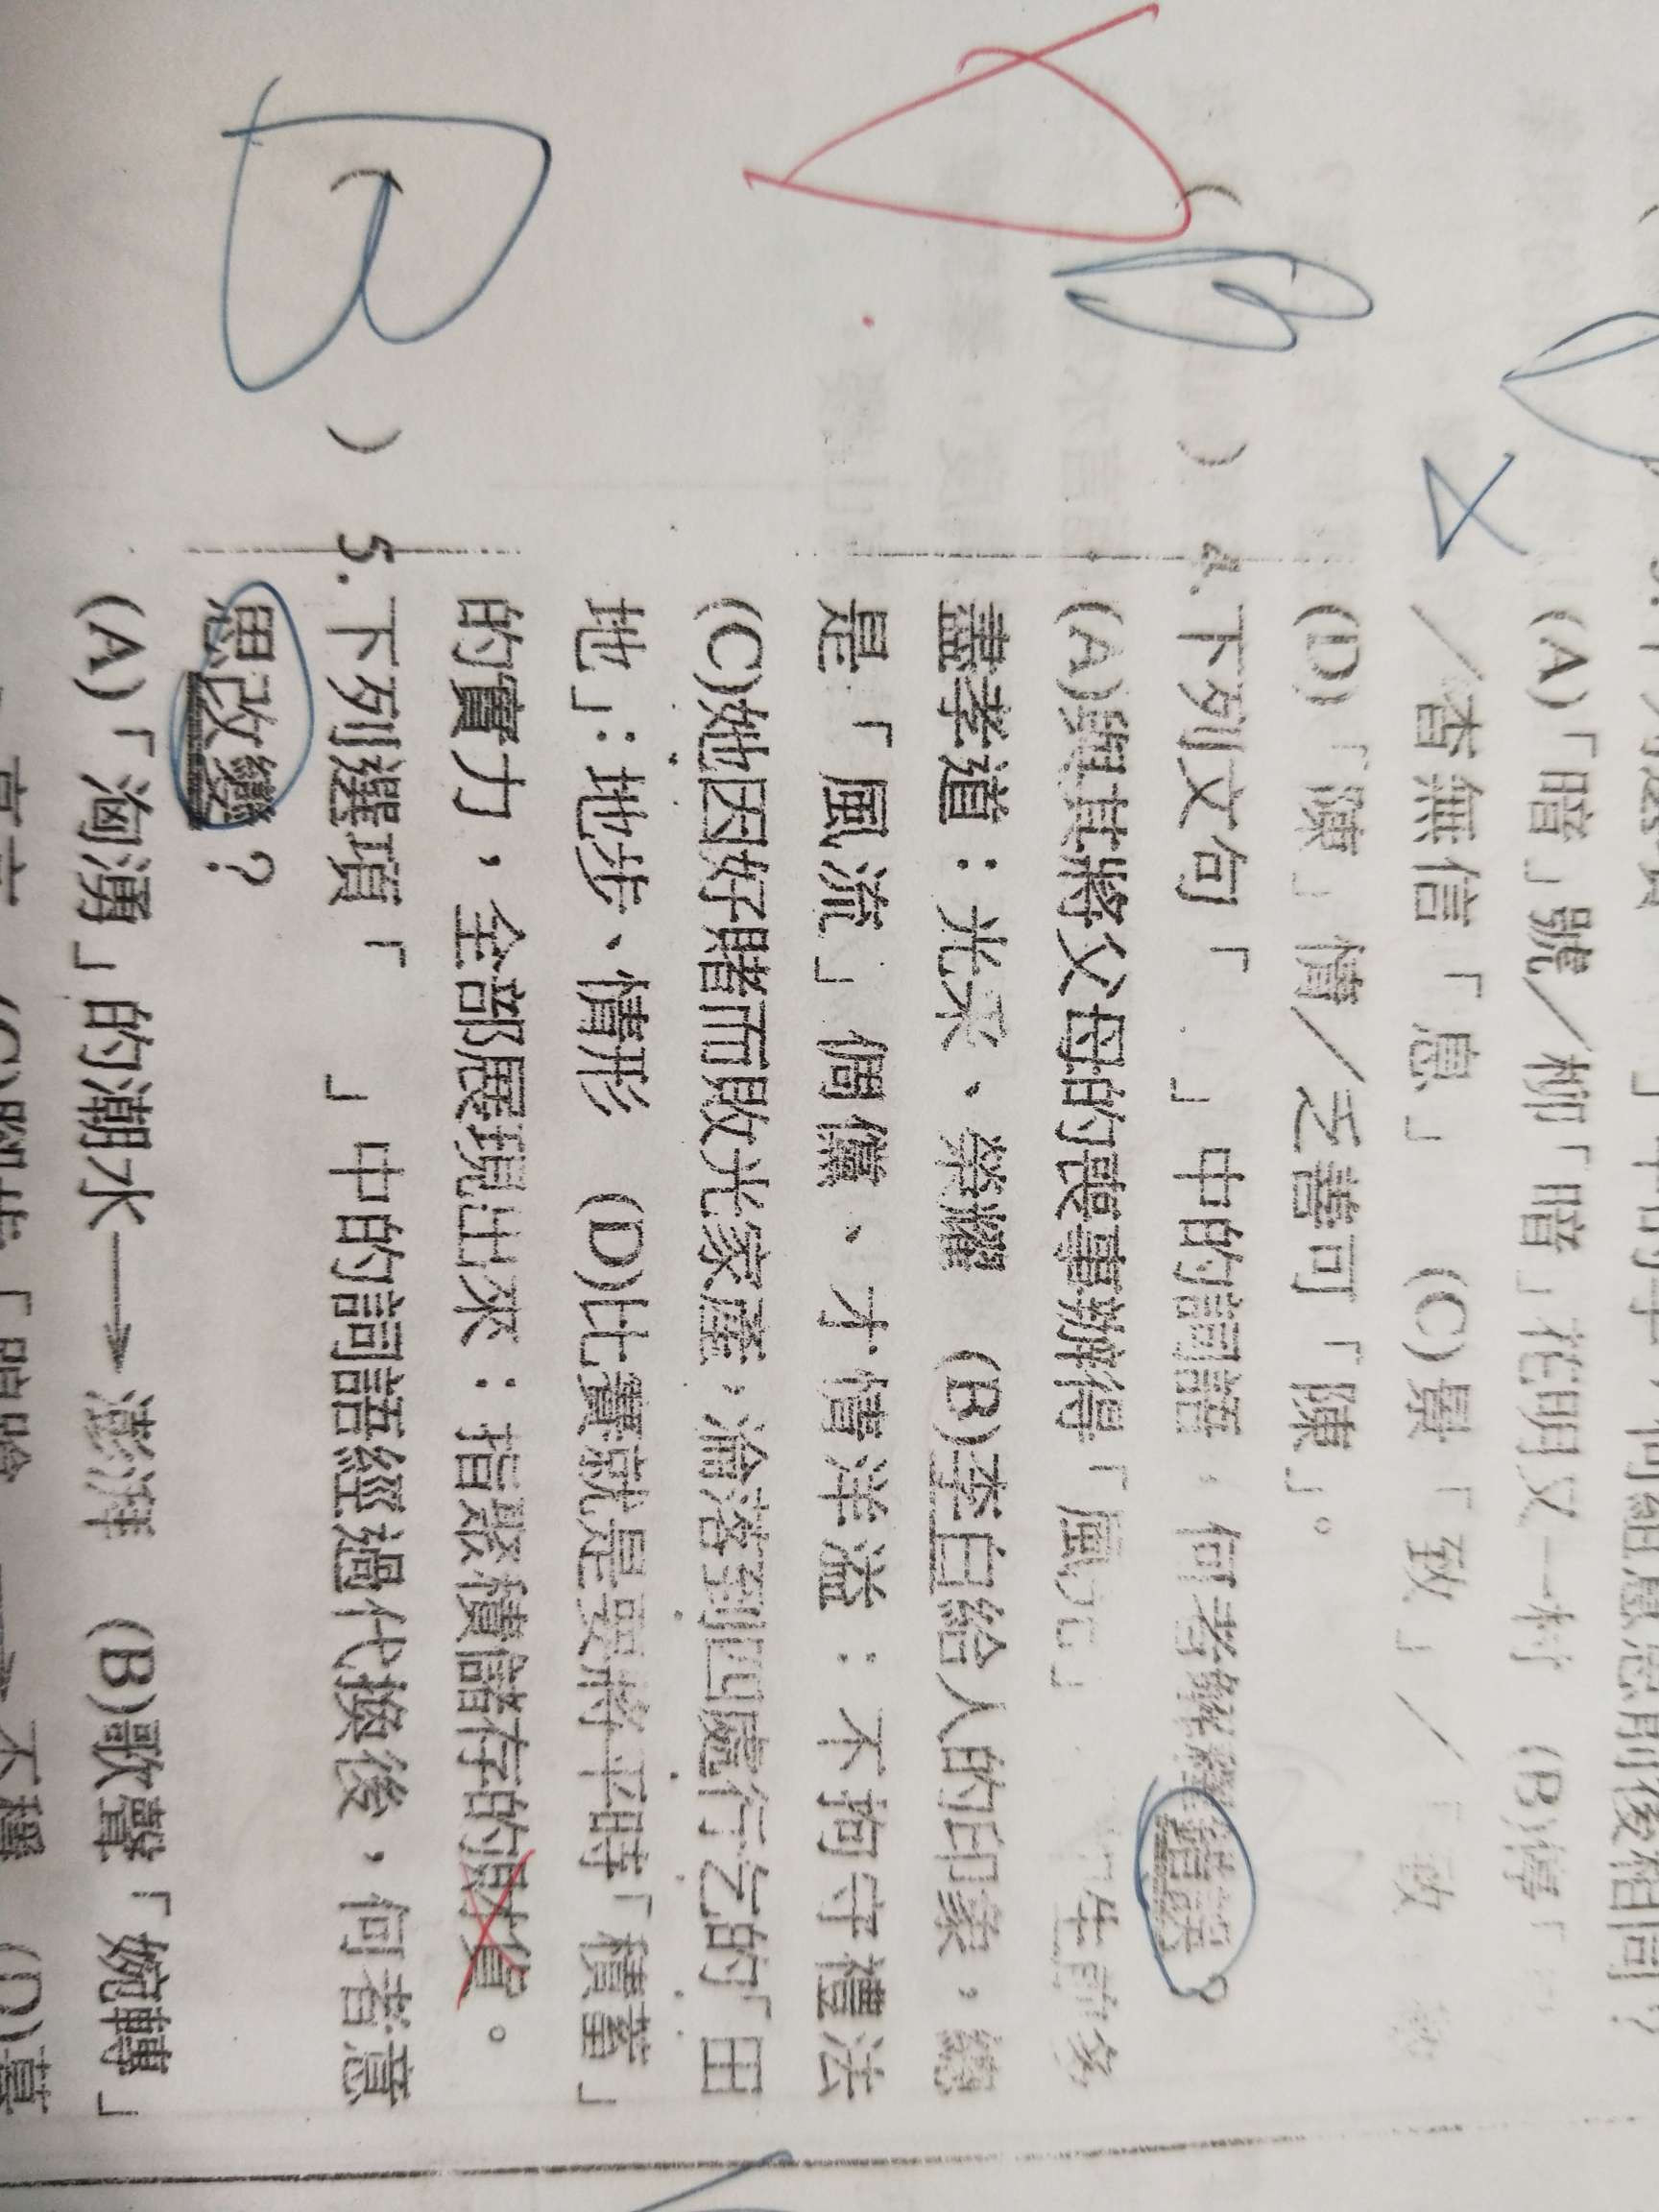 (A)「暗」號／柳「暗」花明又一村 (B)
／杳無信「息」 (C)景「致」／「
(D)「陳」情／乏善可「陳」。
B
( ) 4.下列文句「 」中的詞語，何者解釋錯誤？
(A)與其將父母的喪事辦得「風光」 生前多
盡孝道：光采、榮耀 (B)李白給人的印象，總
是「風流」倜儻、才情洋溢：不拘守禮法
(C)她因好賭而敗光家產，淪落到四處行乞的「田
地」：地步、情形 (D)比賽就是要將平時「積蓄」
的實力，全部展現出來：指聚積儲存的財貨。
( ) 5.下列選項「 」中的詞語經過代換後，何者意
思改變？
(A)「洶湧」的潮水→澎湃 (B)歌聲「婉轉」